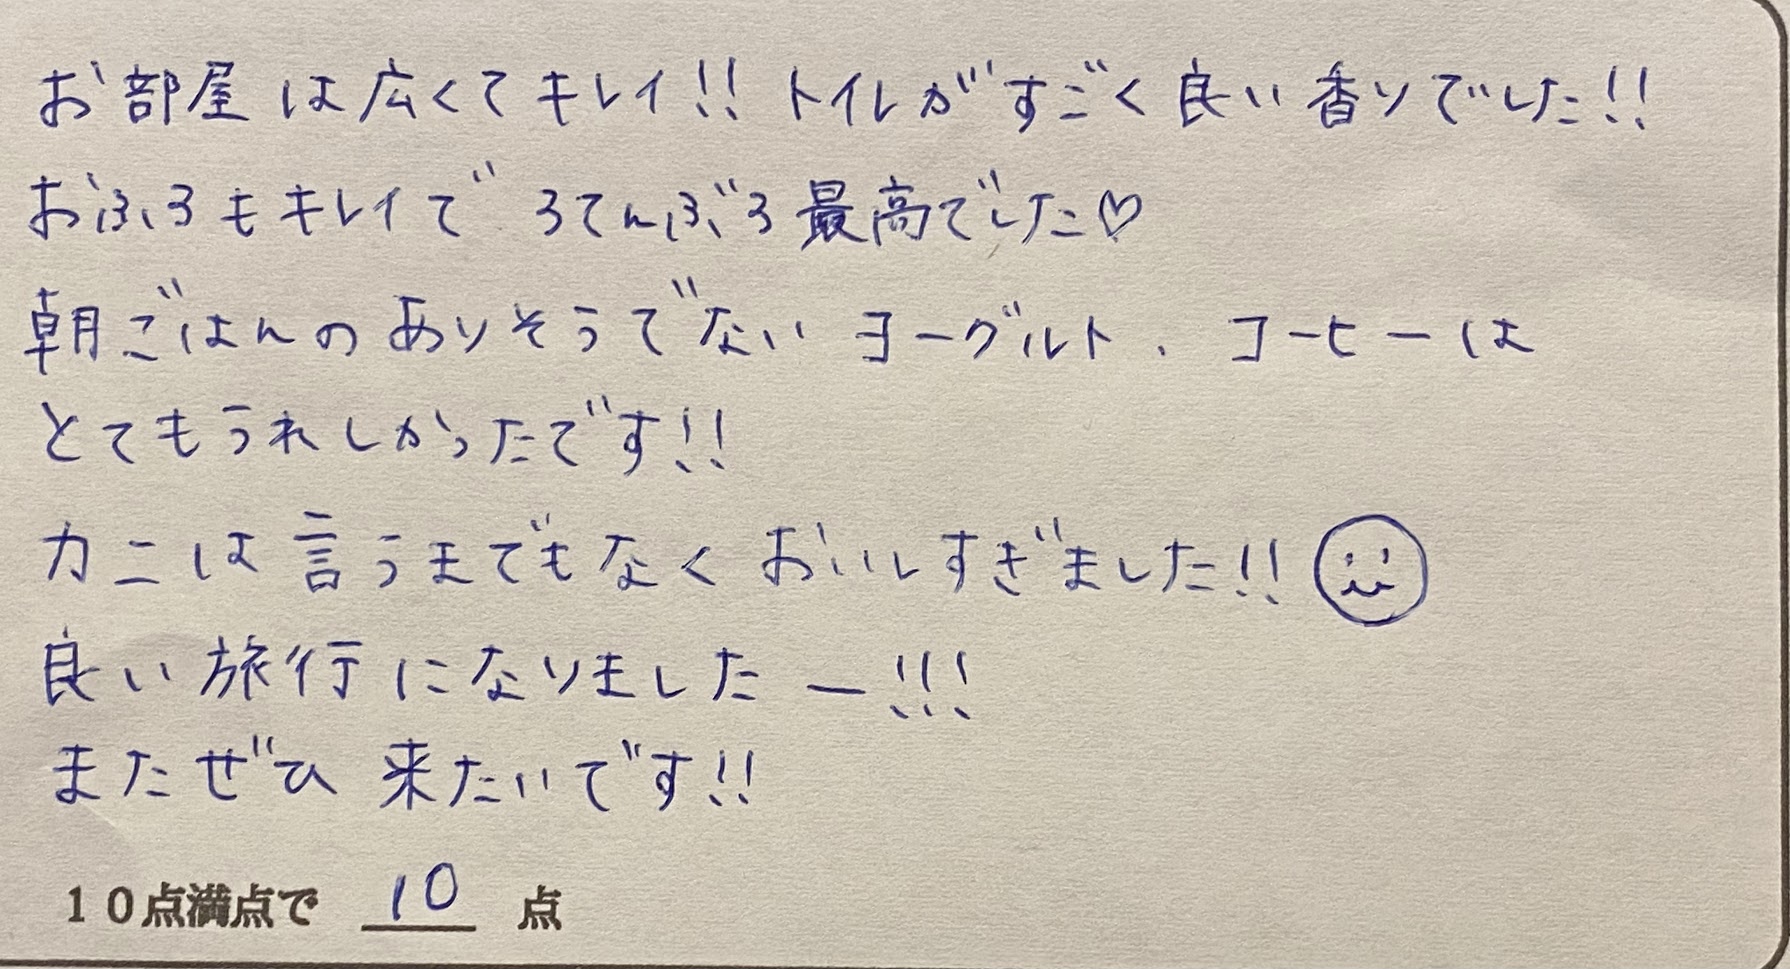 お部屋は広くてキレイ!! トイレがすごく良い香りでした!!
おふろもキレイで ろてんぶろ最高でした♡
朝ごはんのありそうでない ヨーグルト、コーヒーは
とてもうれしかったです!!
カニは言うまでもなく おいしすぎました!!
良い旅行になりましたー!!!
またぜひ 来たいです!!
10点満点で 10 点